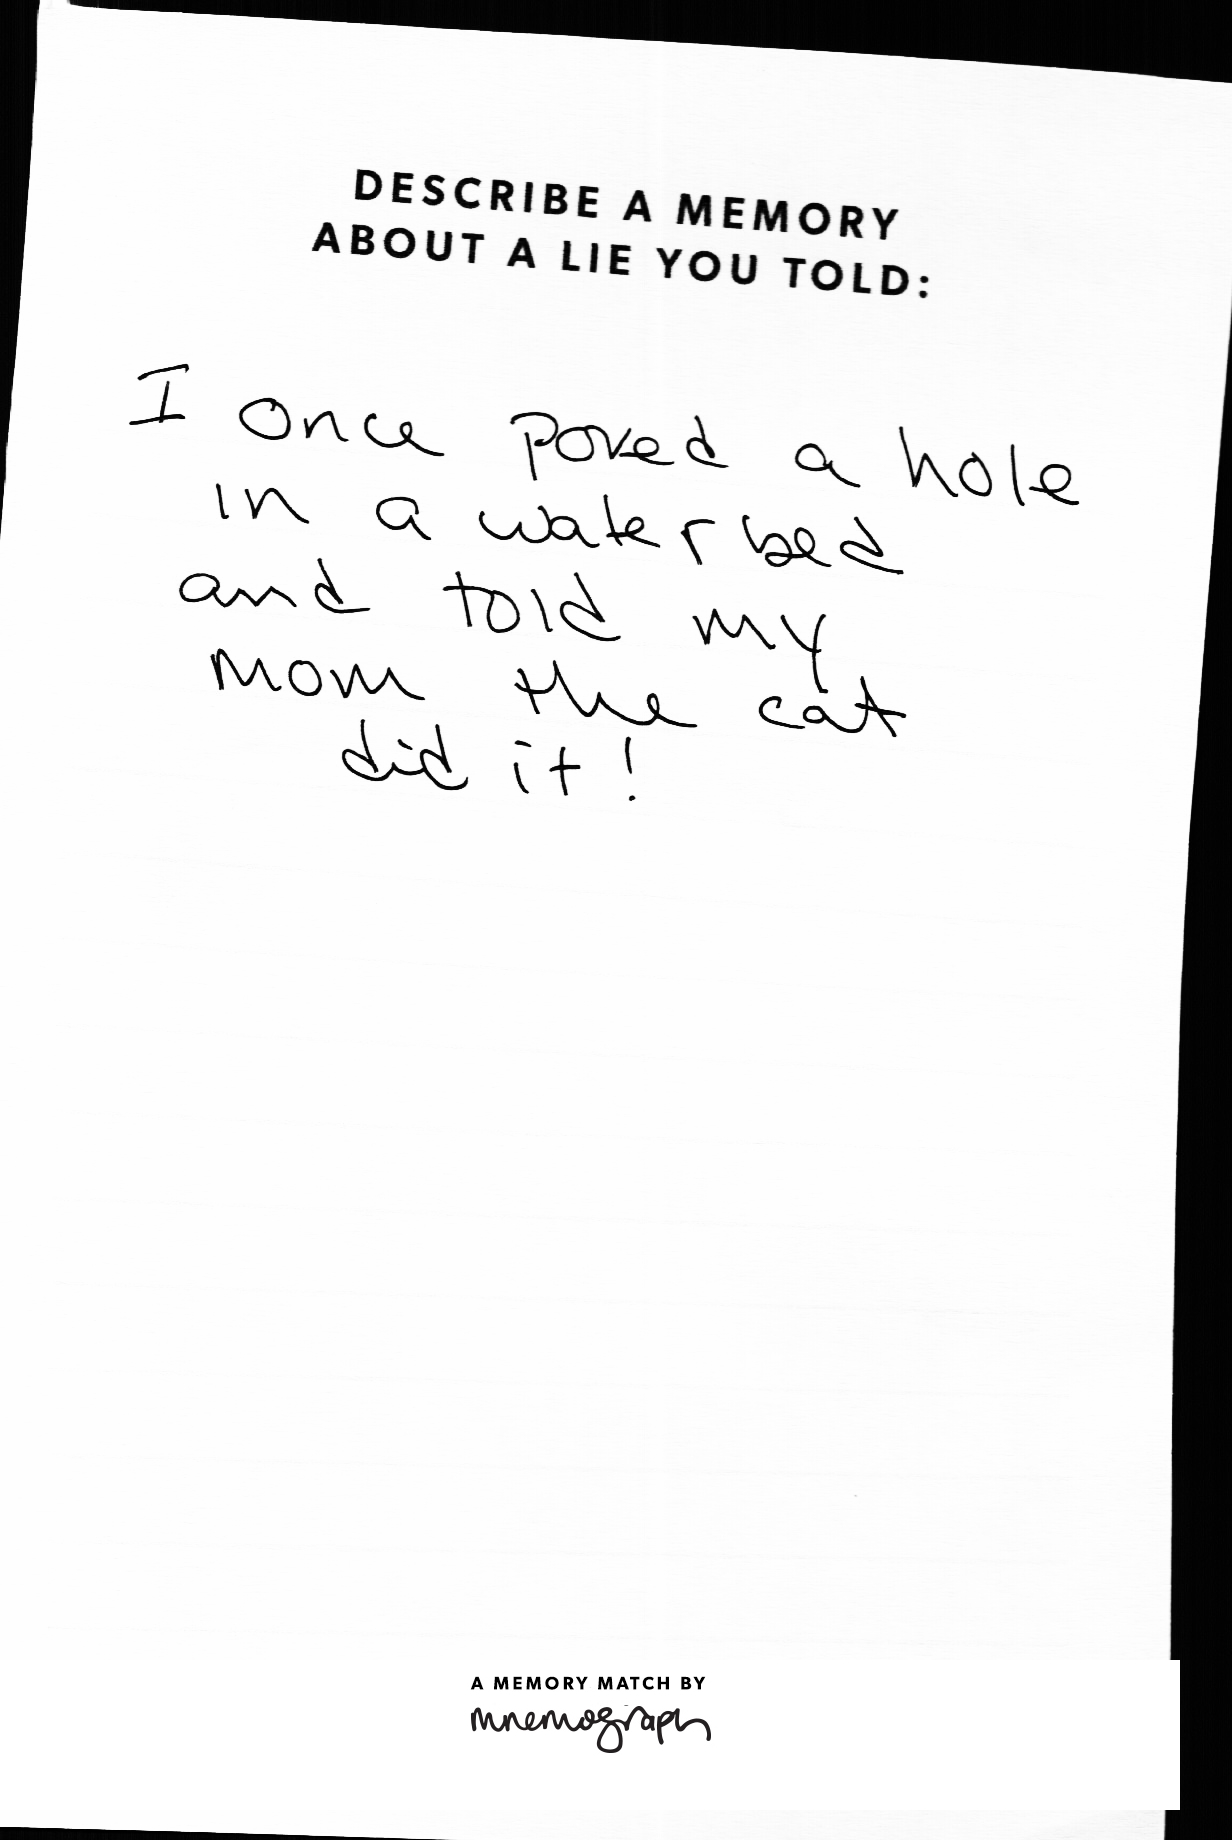 DESCRIBE A MEMORY
ABOUT A LIE YOU TOLD:
I once poked a hole
in a waterbed
and told my
mom the cat
did it!
A MEMORY MATCH BY
mnemograph